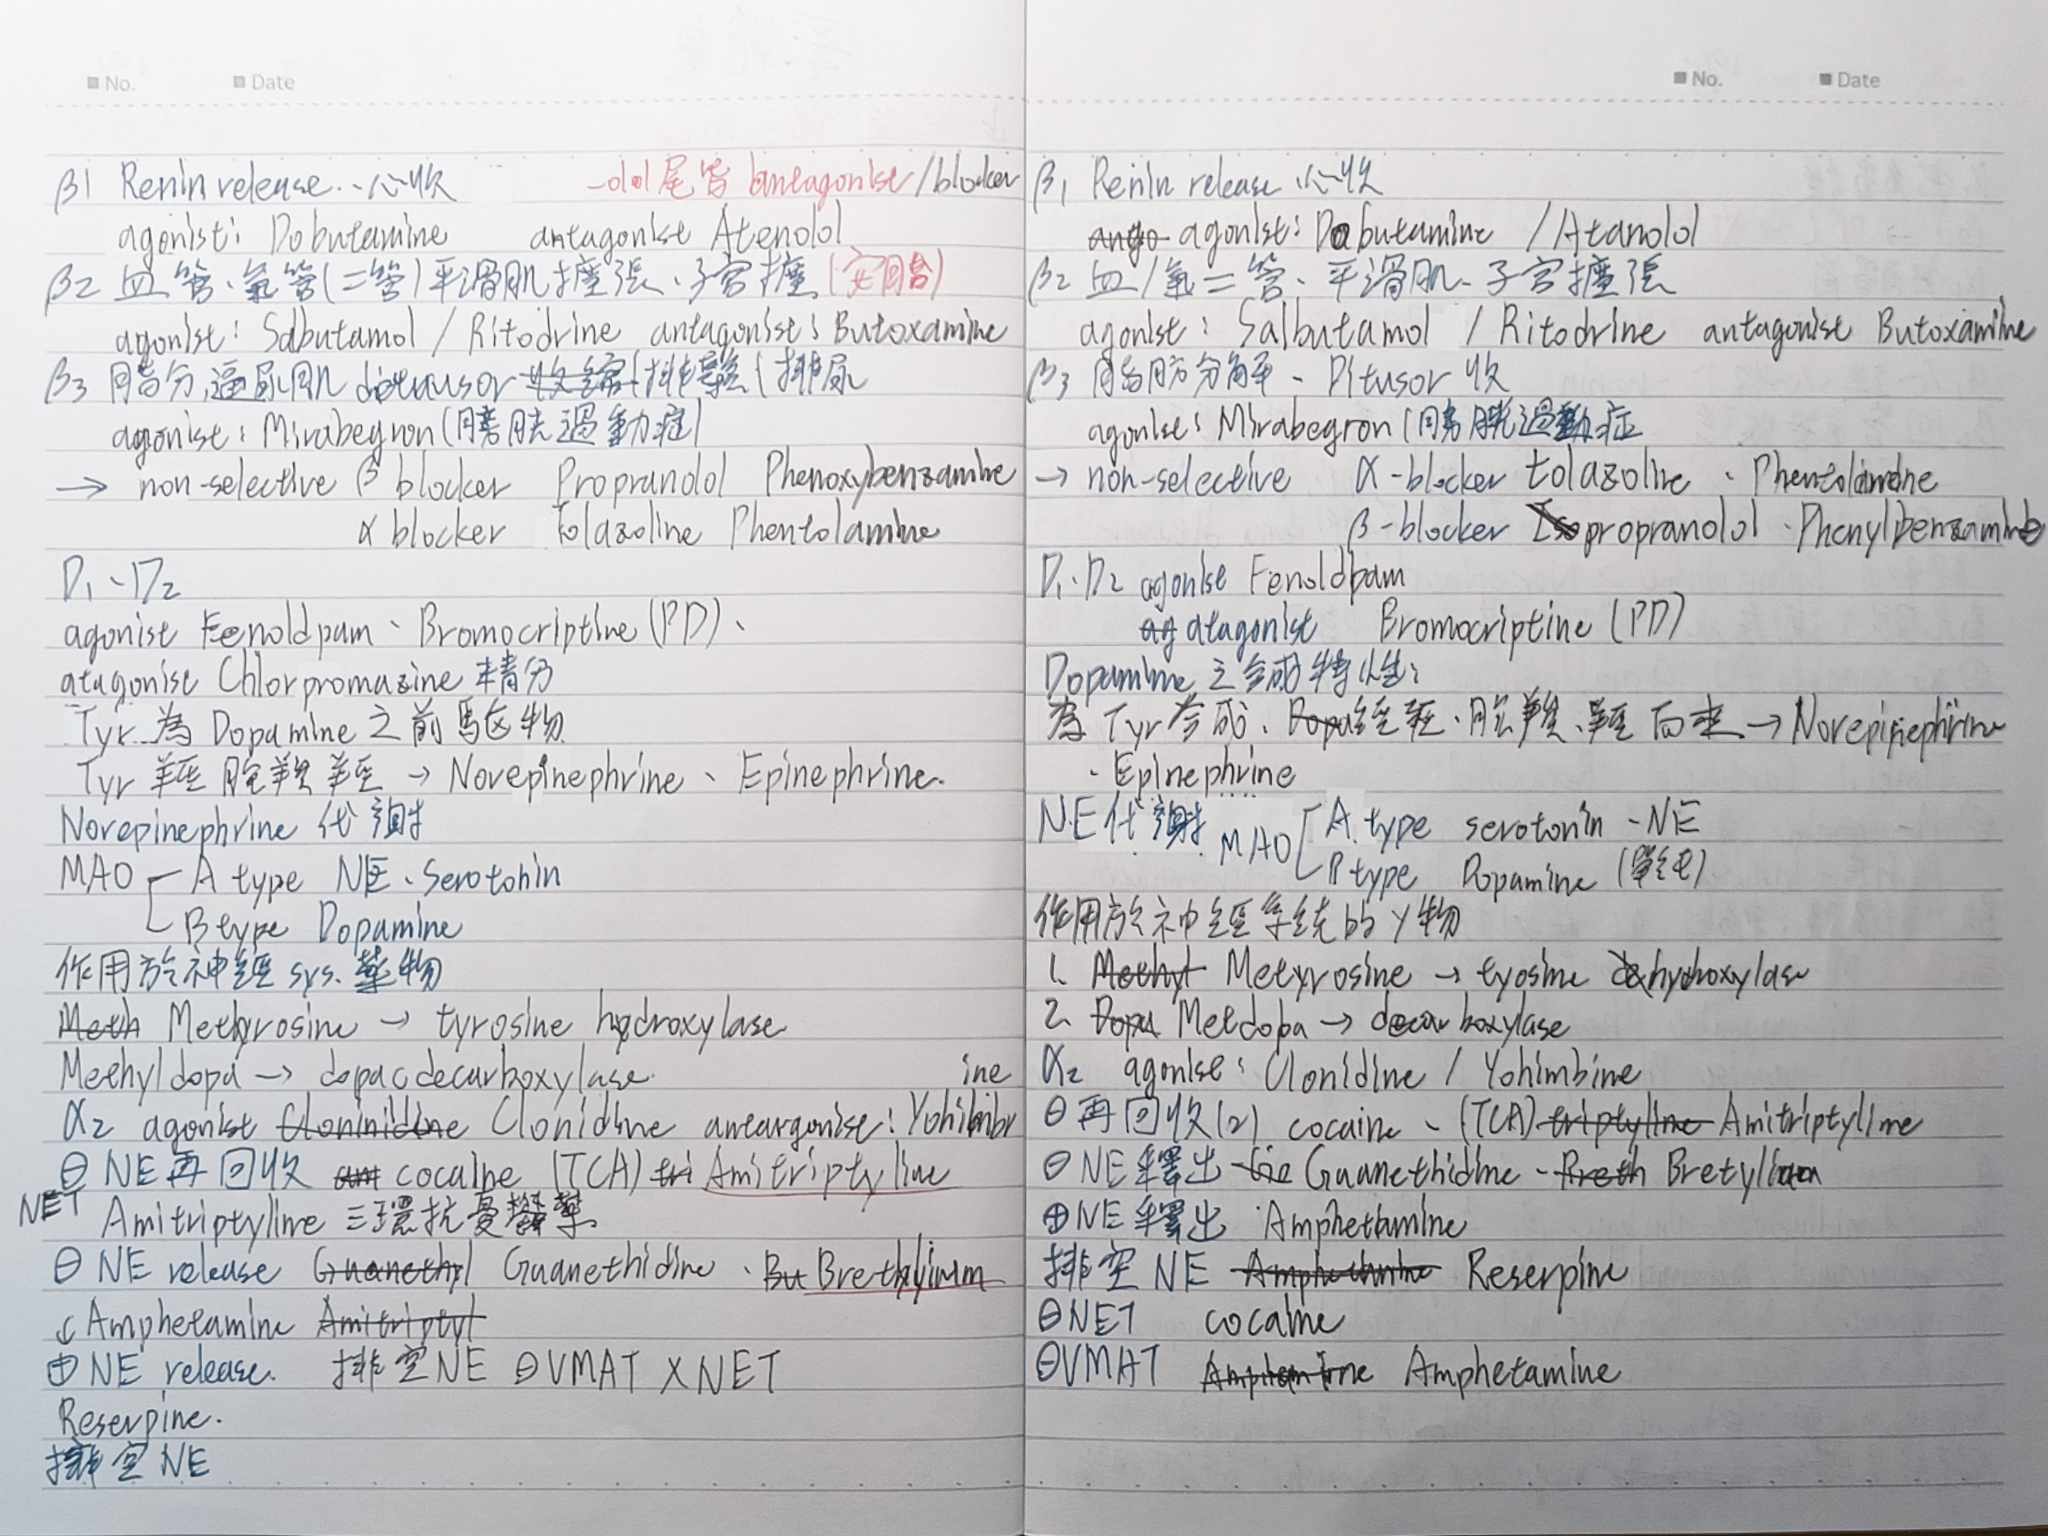 No. Date
β1 Renin release、心收 -olol尾皆 antagonist/blocker
agonist: Dobutamine antagonist Atenolol
β2 血管、氣管(二管)平滑肌擴張、子宮擴(安胎)
agonist: Salbutamol / Ritodrine antagonist: Butoxamine
β3 脂分,逼尿肌 detrusor 收縮(排鬆(排尿
agonist: Mirabegron (膀胱過動症)
→ non-selective β blocker Propranolol Phenoxybenzamine
α blocker Tolazoline Phentolamine
D1、D2
agonist Fenoldpam、Bromocriptine (PD)、
atagonist Chlorpromazine 精分
Tyr 為 Dopamine 之前驅物
Tyr 羥 脫羧 羥 → Norepinephrine、Epinephrine.
Norepinephrine 代謝
MAO A type NE、Serotonin
B type Dopamine
作用於神經 sys. 藥物
Meth Metyrosine → tyrosine hydroxylase
Methyldopa → dopa decarboxylase. ine
α2 agonist Cloninidine Clonidine antargonist: Yohimbi
⊖ NE再回收 ant cocaine (TCA) tri Amitriptyline
NET Amitriptyline 三環抗憂鬱藥
⊖ NE release Guanethyl Guanethidine、Bu Brethylium
Amphetamine Amitriptyl
⊕ NE release. 排空NE ⊖VMAT X NET
Reserpine.
排空 NE
No. Date
β1 Renin release 心收
antgo agonist: Dobutamine / Atanolol
β2 血/氣二管、平滑肌、子宮擴張
agonist: Salbutamol / Ritodrine antagonist Butoxamine
β3 脂肪分解、Ditusor 收
agonist: Mirabegron (膀胱過動症
→ non-selective α-blocker tolazoline、Phentolamine
β-blocker Iso propranolol、Phenylbenzamine
D1、D2 agonist Fenoldpam
ag atagonist Bromocriptine (PD)
Dopamine 之合成特性:
為 Tyr合成、Dopa 經羥、脫羧、羥而來 → Norepinephrine
、Epinephrine
NE代謝 MAO A. type serotonin - NE
B type Dopamine (單純)
作用於神經系統的Y物
1. Methyl Metyrosine → tyosine hydroxylase
2. Dopa Metdopa → decarboxylase
α2 agonist: Clonidine / Yohimbine
⊖再回收(2) cocaine、(TCA) triptyline Amitriptyline
⊖ NE釋出 Guanethidine、Breth Bretylium
⊕NE釋出 Amphetamine
排空NE Amphetamine Reserpine
⊖NET cocaine
⊖VMAT Amphetamine